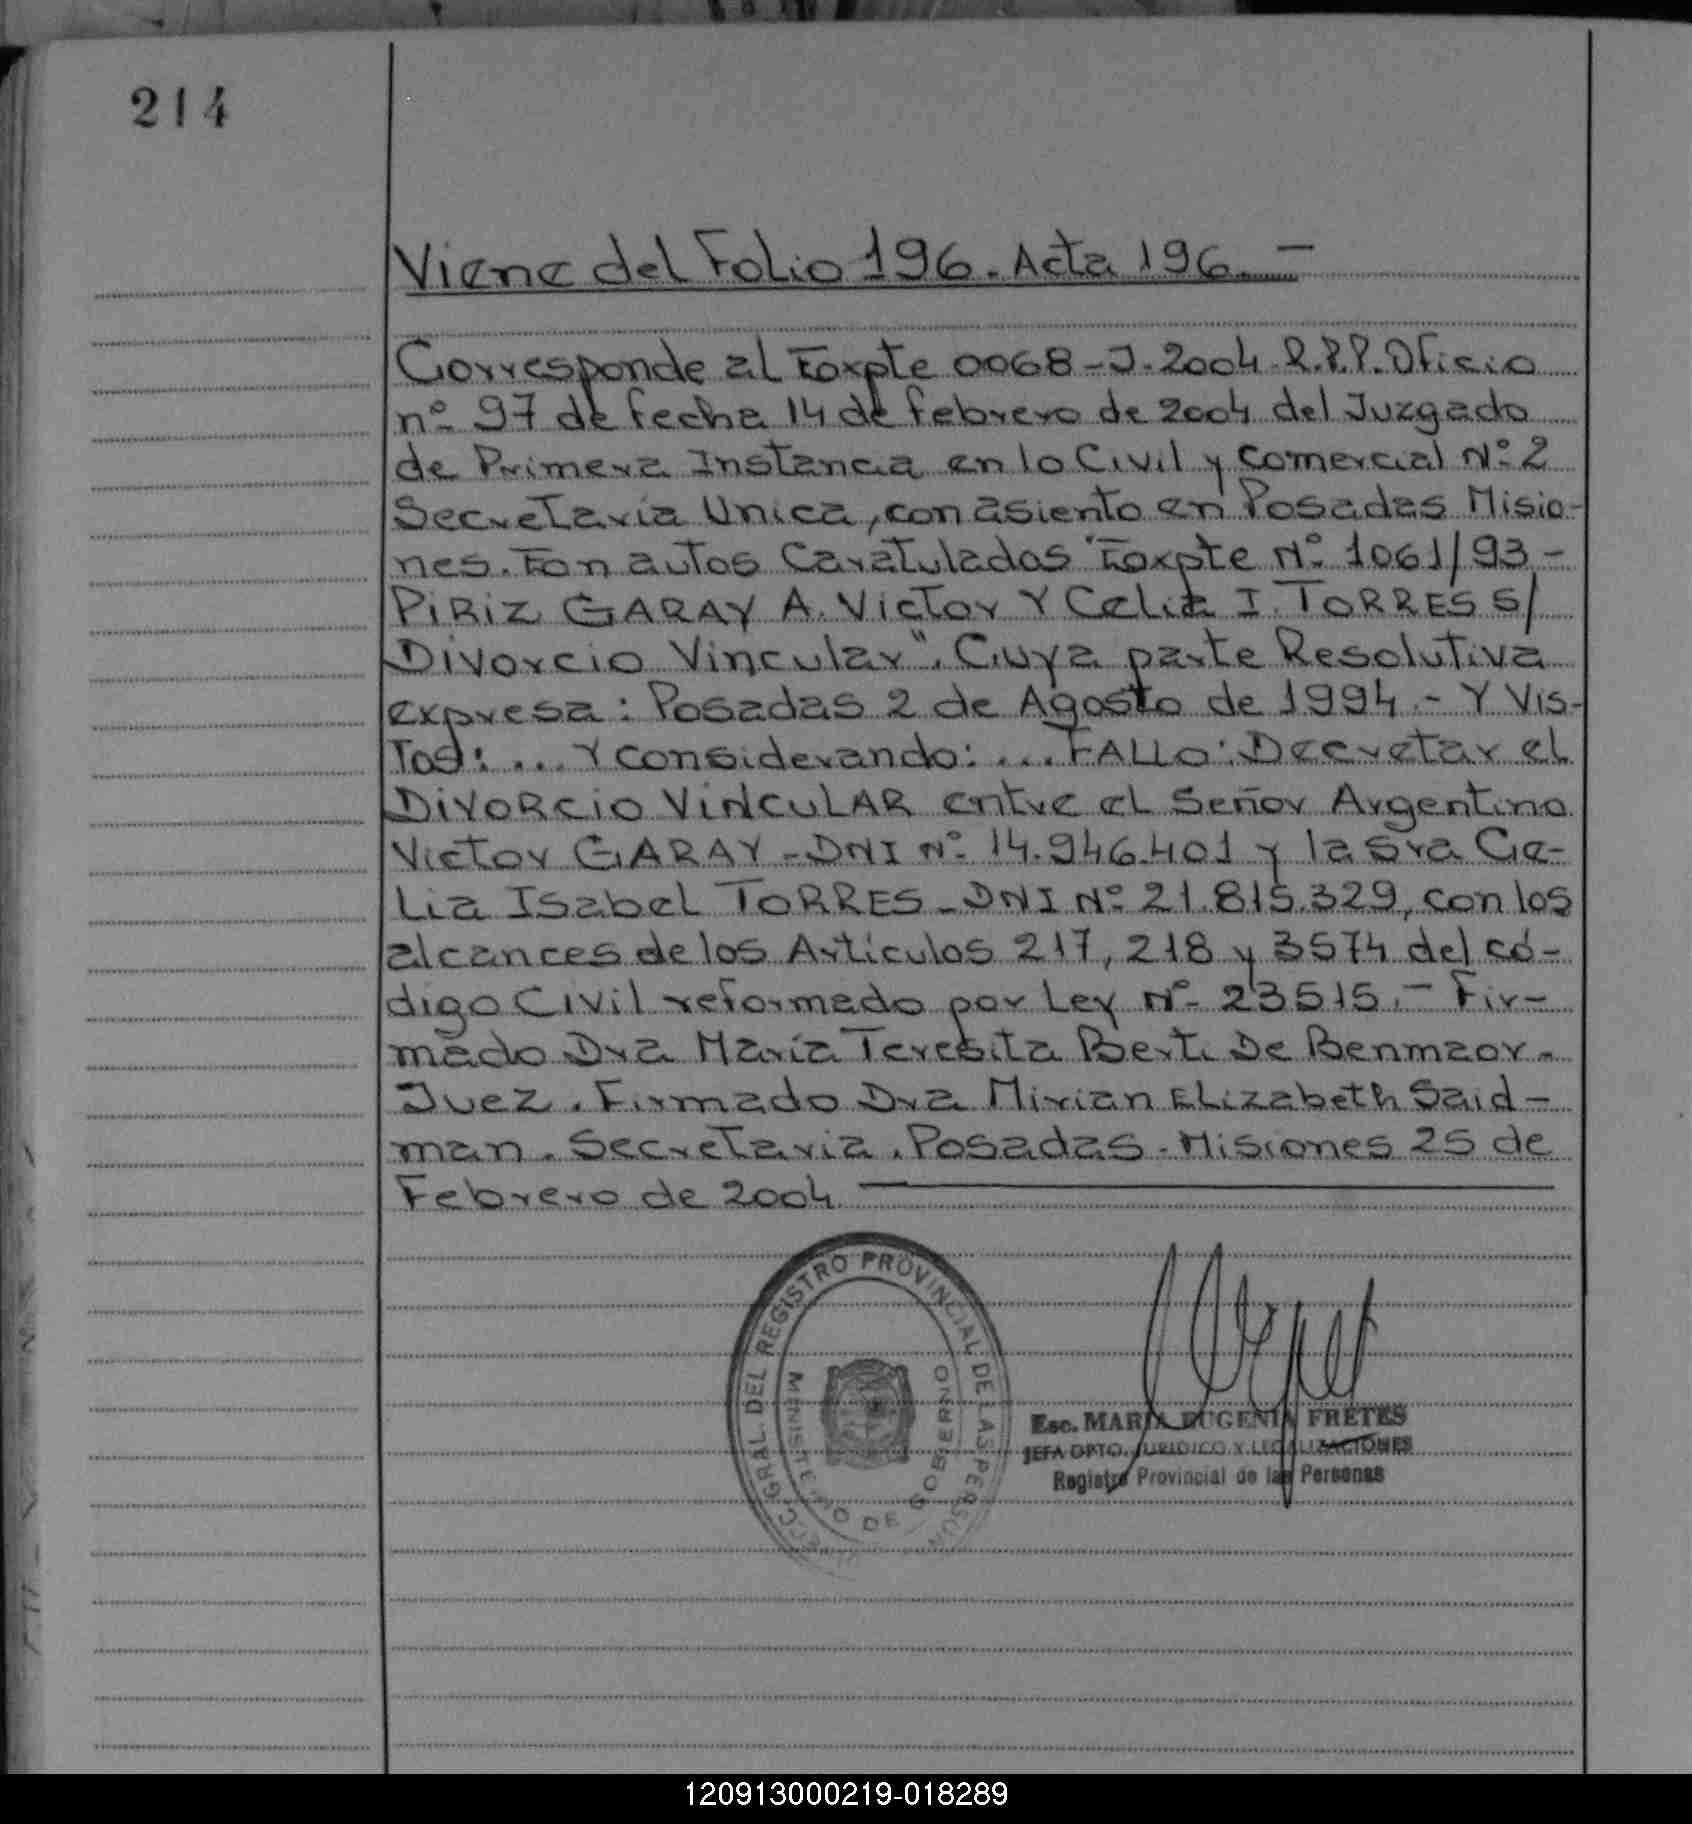 214
Viene del Folio 196. Acta 196. -
Corresponde al Expte 0068-J-2004-R.P.P. Oficio
nº 97 de fecha 14 de febrero de 2004 del Juzgado
de Primera Instancia en lo Civil y Comercial Nº 2
Secretaría Unica, con asiento en Posadas Misio-
nes. En autos Caratulados "Expte Nº 1061/93 -
PIRIZ GARAY A. Victor Y Celia I. TORRES S/
Divorcio Vincular". Cuya parte Resolutiva
expresa: Posadas 2 de Agosto de 1994.- Y Vis-
tos: ... Y Considerando: ... FALLO: Decretar el
DIVORCIO VINCULAR entre el Señor Argentino
Victor GARAY - DNI Nº 14.946.401 y la Sra Ce-
lia Isabel TORRES - DNI Nº 21.815.329, con los
alcances de los Artículos 217, 218 y 3574 del có-
digo Civil reformado por Ley Nº 23515.- Fir-
mado Dra María Teresita Berti De Benmaor.
Juez. Firmado Dra Mirian Elizabeth Said-
man. Secretaria. Posadas - Misiones 25 de
Febrero de 2004
GRAL. DEL REGISTRO PROVINCIAL DE LAS PERSON
MINISTERIO DE GOBIERNO
Esc. MARIA EUGENIA FRETES
JEFA DPTO. JURIDICO Y LEGALIZACIONES
Registro Provincial de las Personas
120913000219-018289